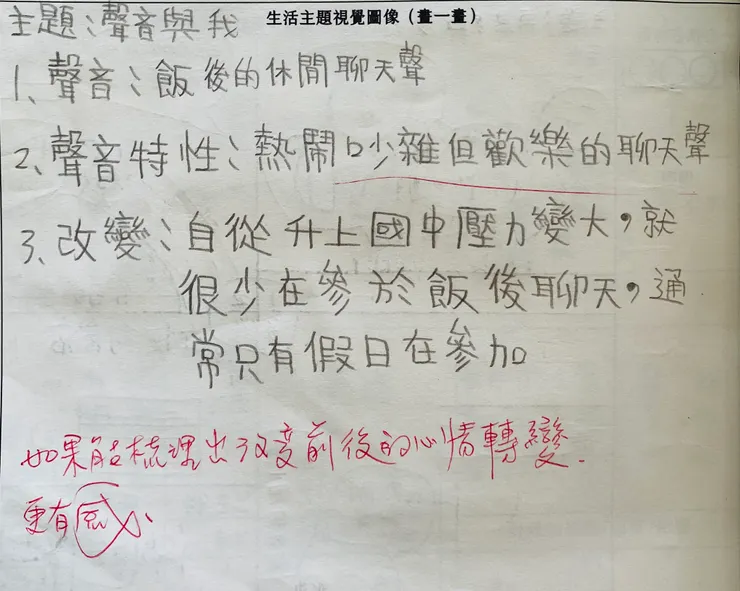 生活主題視覺圖像（畫一畫）
主題：聲音與我
1、聲音：飯後的休閒聊天聲
2、聲音特性：熱鬧吵雜但歡樂的聊天聲
3、改變：自從升上國中壓力變大，就
很少在參於飯後聊天，通
常只有假日在參加
如果能梳理出改變前後的心情轉變.
更有感